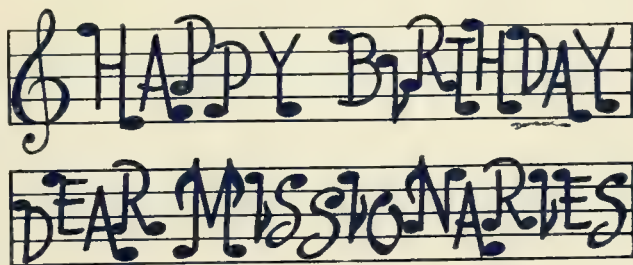 HAPPY BIRTHDAY
DEAR MISSIONARIES